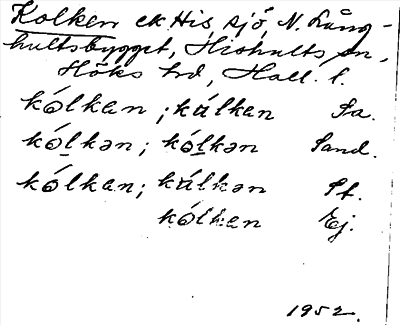 Kolken ek His sjö, N. Lång-
hultsbygget, Hishults sn,
Höks hd, Hall. l.
kólkan ; kúlkan Fa.
kólkən ; kólkən Sand.
kólkan ; kúlkən Sf.
kólkan Ej.
1952.